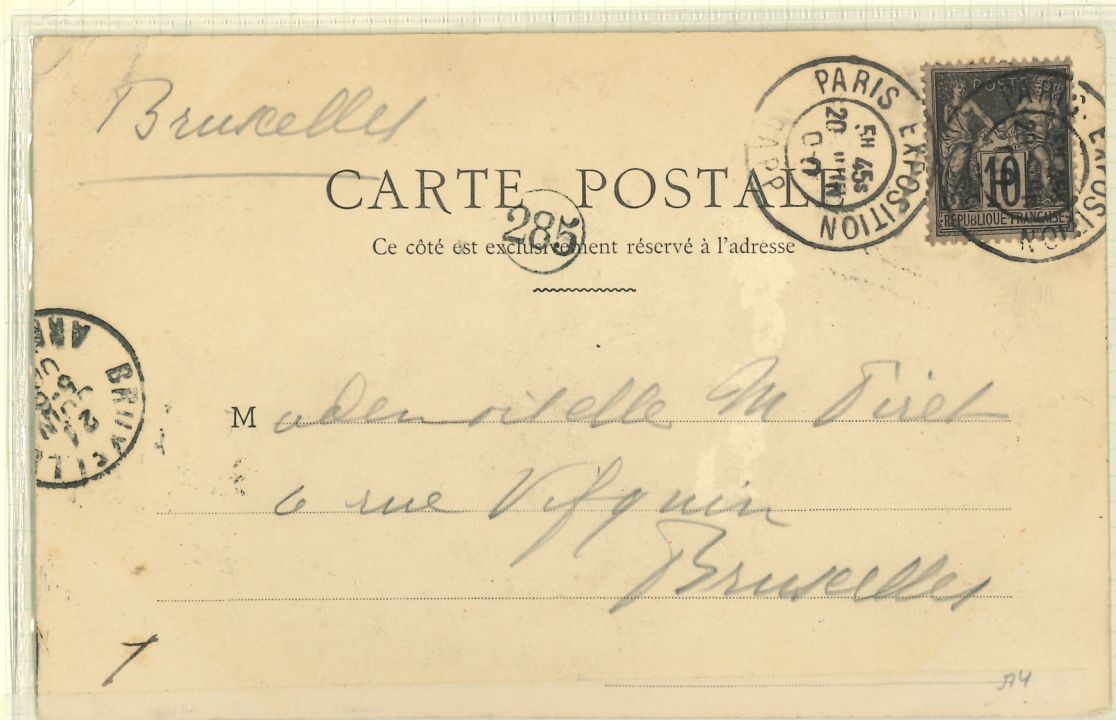 Bruxelles
CARTE POSTALE
Ce côté est exclusivement réservé à l'adresse
285
PARIS EXPOSITION
RAPP
5H 45S
20
POSTE
10
REPUBLIQUE FRANÇAISE
PARIS EXPOSITION
BRUXELL
21
Mademoiselle M Piret
6 rue Vifquin
Bruxelles